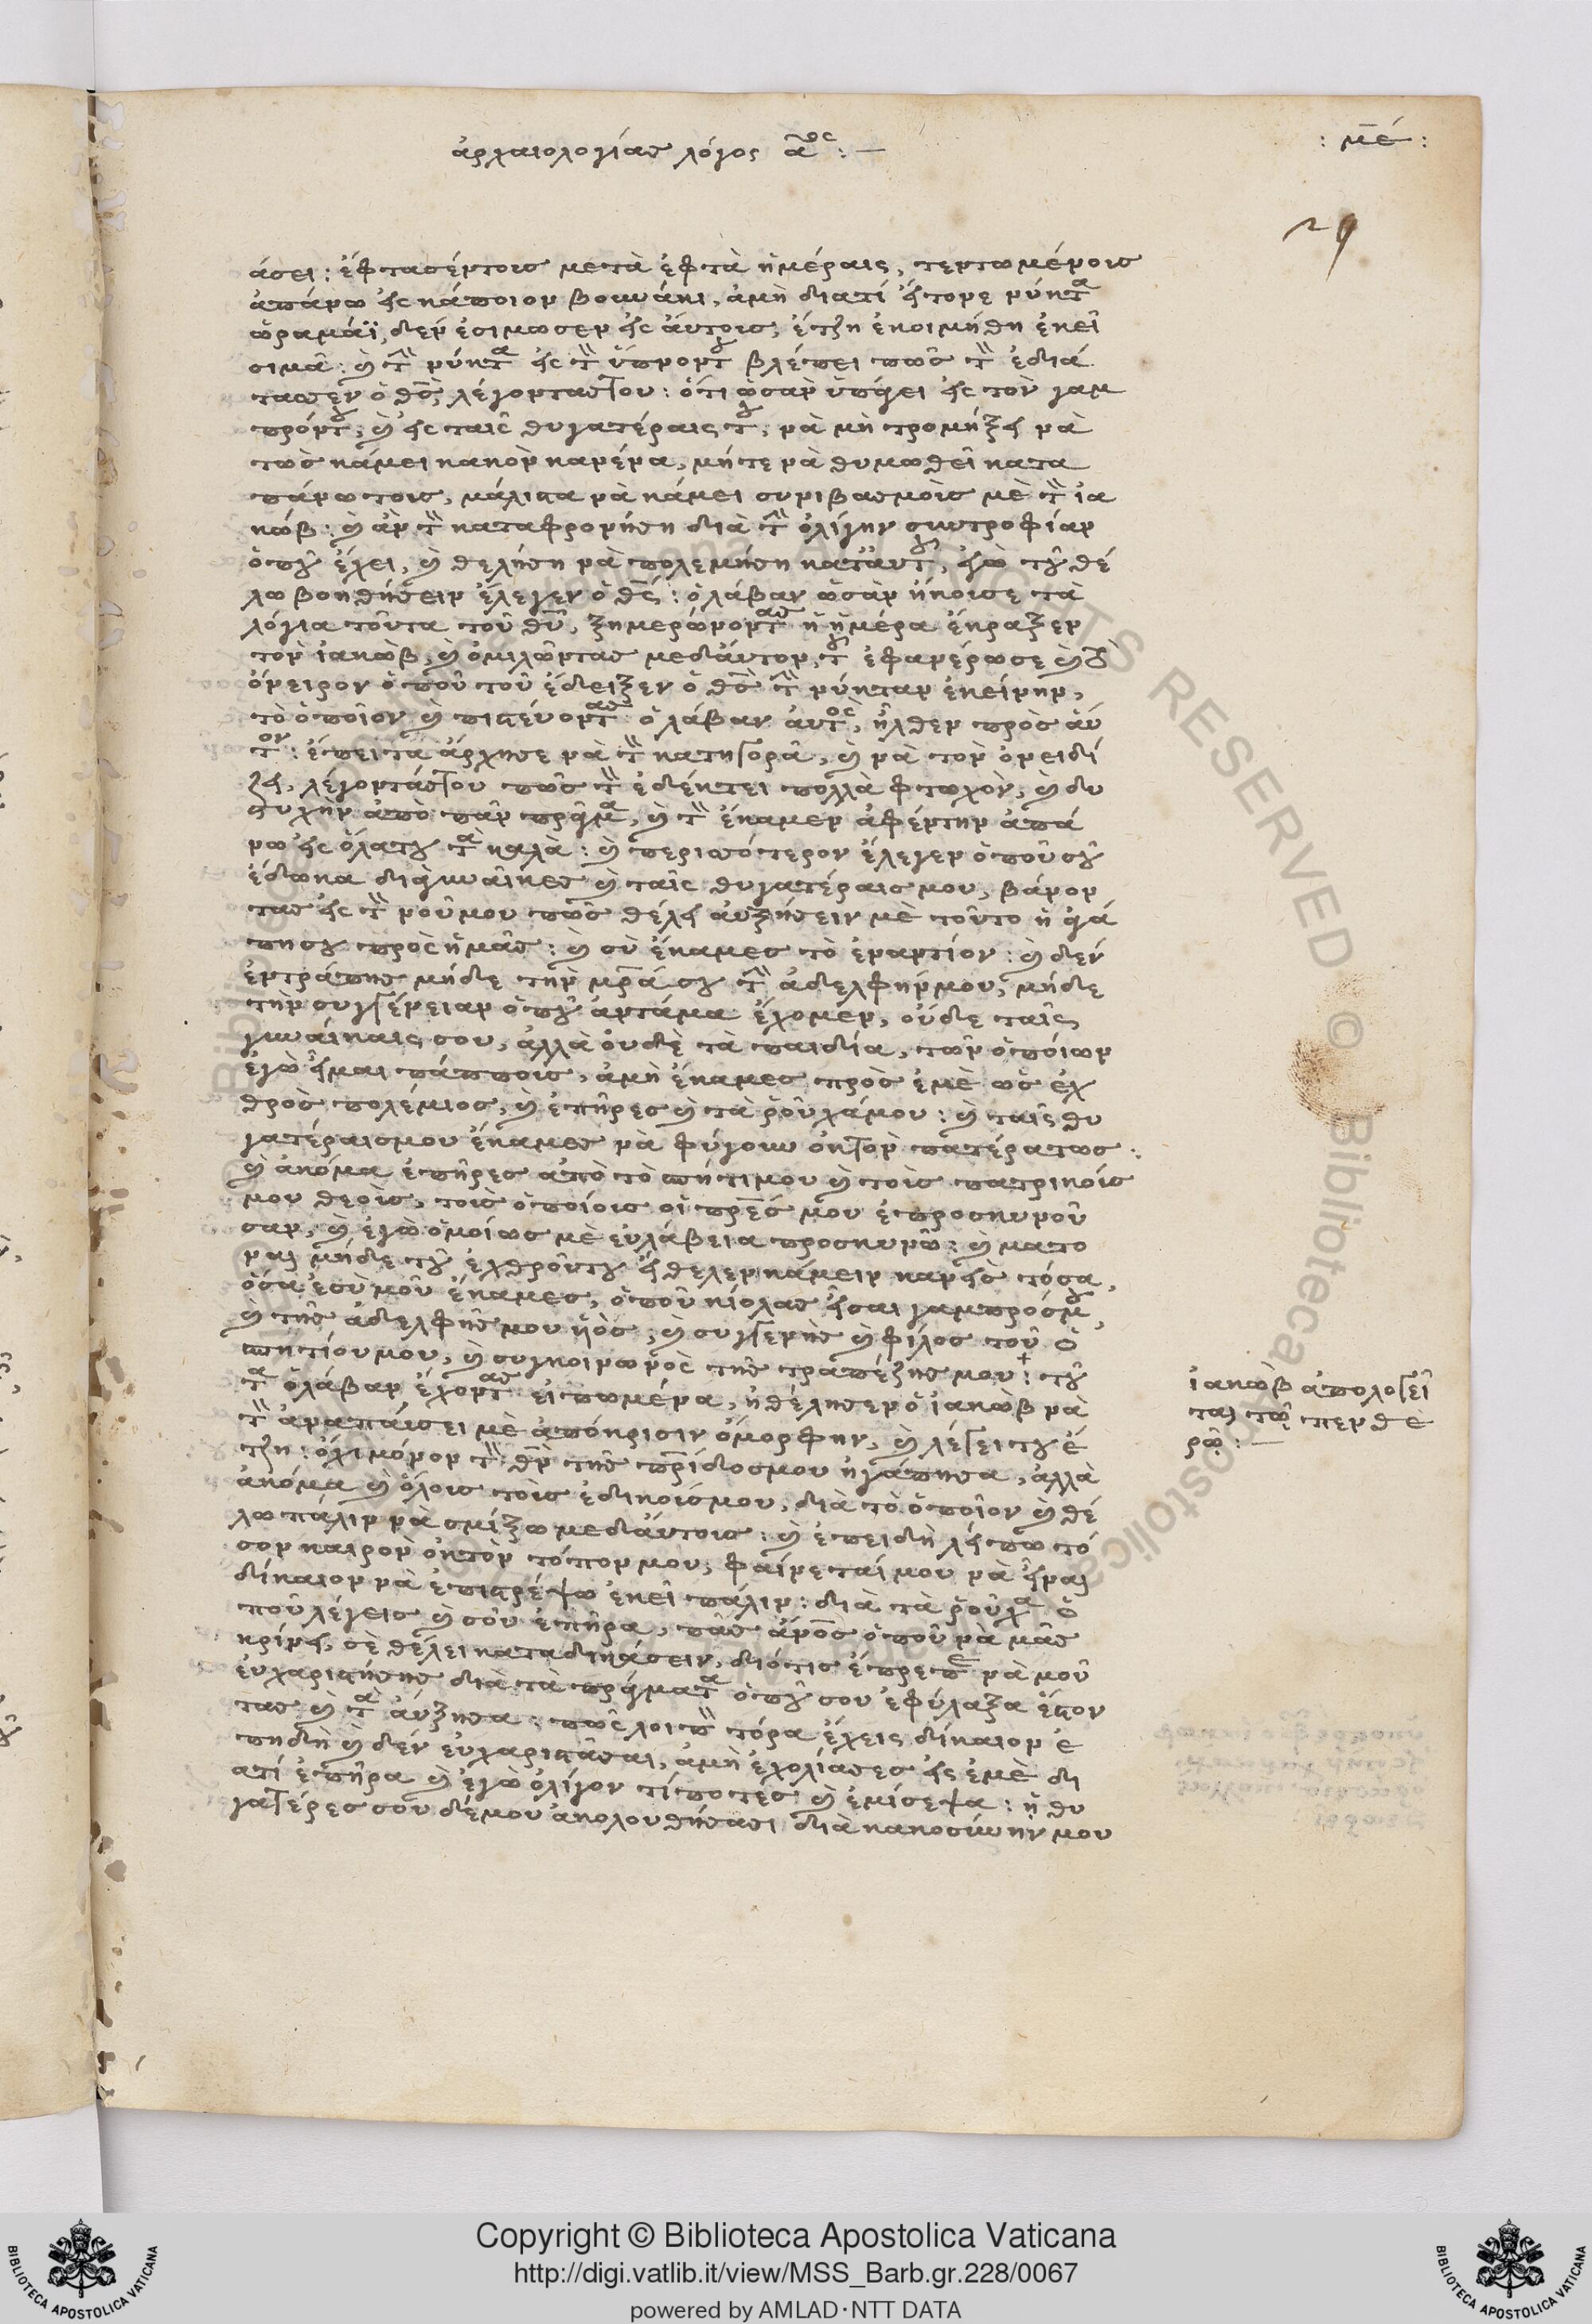 ἀρχαιολογίας λόγος α^ος :—
: με :
29
άσει : ἐφτασέντοις μετὰ ἑφτὰ ἡμέραις, τεντωμένοις
ἀπάνω εἰς κάποιον βουνάκι, ἀμὴ διατί ἦτονε νύκτ^α
ὥραμάϊ, δὲν ἐσίμωσεν εἰς αὐτοις, ἔτζη ἐκοιμήθη ἐκεῖ
σιμᾶ : καὶ τὴ νύκτ^α εἰς τὸ ὕπνοντ^ου βλέπει πῶς τὸ ἐδιά
ταξεν ὁ θς, λέγοντάςτου : ὅτι ὡσὰν ὑπάγει εἰς τὸν γαμ
πρόντ^ου, καὶ εἰς ταῖς θυγατέραις τ^ου, νὰ μὴ τρομήξη νὰ
τῶς κάμει κακὸν κανένα, μήτε νὰ θυμωθεῖ κατα
πάνω τοις, μάλιστα νὰ κάμει συνιβασμοὶς μὲ τὸ ἰα
κώβ : καὶ ἂν τὸ καταφρονήση διὰ τὴ ὀλίγην συντροφίαν
ὁποῦ ἔχει, καὶ θελήση νὰ πολεμήση κατάυτ^ου, ἐγὼ τοῦ θέ
λω βοηθήσειν ἔλεγεν ὁ θς : ὁ λάβαν ὡσὰν ἤκοισε τὰ
λόγια τοῦτα τοῦ θυ, ξημερώνοντ^ας ἡ ἡμέρα ἔκραξεν
τὸν ἰακώβ, καὶ ὁμιλῶντας μεδάυτον, τοῦ ἐφανέρωσε καὶ τὸ
όνειρον ὁποῦ τοῦ ἔδειξεν ὁ θς τὴ νύκταν ἐκείνην,
τὸ ὁποῖον καὶ πιστεύοντ^ας ὁ λάβαν αὐτ^ὸς, ἦλθεν πρὸς αὐ
τ^ον : ἔπειτα ἄρχησε νὰ τὸ κατηγορᾶ, καὶ νὰ τὸν ὀνειδί
ζη, λέγοντάςτου πῶς τὸ ἐδέκτει πολλὰ φτωχὸν, καὶ δυ
συχὴν ἀπὸ πᾶν πρᾶγμ^α, καὶ τὸ ἔκαμεν ἀφέντην ἀπά
νω εἰς ὅλατου τ^ὰ καλὰ : καὶ περισσότερον ἔλεγεν ὁποῦ σοῦ
ἔδωκα διὰ γυναῖκες καὶ ταῖς θυγατέραις μου, βάνον
τας εἰς τὸ νοῦμου πῶς θέλη αὐξήσειν μὲ τοῦτο ἡ ἀγά
πη σου πρὸς ἡμᾶς : καὶ σὺ ἔκαμες τὸ ἐναντίον : καὶ δὲν
ἐντράπης μήδε τὴν μρα σου τὴ ἀδελφήνμου, μήδε
τὴν συγγένειαν ὁποῦ ἀντάμα ἔχομεν, οὐδὲ ταῖς
γυναίκαις σου, ἀλλὰ οὐδὲ τὰ παιδία, τῶν ὁποίων
ἐγὼ εἶμαι πάπποις, ἀμὴ ἔκαμες πρὸς ἐμὲ ὡς ἐχ
θρὸς πολέμιος, καὶ ἐπῆρες καὶ τὰ ῥοῦχάμου : καὶ ταῖς θυ
γατέραισμου ἔκαμες νὰ φύγουν ὀκτον πατέρατως :
καὶ ἀκόμα ἐπῆρες ἀπὸ τὸ σπήτιμου καὶ τοὶς πατρικοίς
μου θεοὶς, τοὶς ὁποίοις οἱ πρες μου ἐπροσκυνοῦ
σαν, καὶ ἐγὼ ὁμοίως μὲ εὐλάβεια προσκυνῶ : καὶ μάτο
ναι μήδε τοῦ ἐχθροῦντου ἤθελεν κάμειν κανεὶς τόσα,
ὅσα ἐσὺ μοῦ ἔκαμες, ὁποῦ κίολας εἶσαι γαμπρόςμ^ου,
καὶ τῆς ἀδελφῆςμου ὑὸς, καὶ συγγενὴς καὶ φίλος τοῦ ὁ
σπητίου μου, καὶ συγκοινωνὸς τῆς τραπέζης μου : τοῦ
τ^α ὁ λάβαν ἔχοντ^ας εἰπωμένα, ἠθέλησεν ὁ ἰακὼβ νὰ
τὸ ἀναπάισει μὲ ἀπόκρισιν ὄμορφην, καὶ λέγει του ἔ
τζη : ὄχι μόνον τὸ θν τῆς πρίδοσμου ἠγάπησα, ἀλλὰ
ἀκόμα καὶ ὅλοις τοὶς ἐδικοίςμου, διὰ τὸ ὁποῖον καὶ θέ
λω πάλιν νὰ σμίξω μεδάυτοις : καὶ ἐπειδὴ λείπω τό
σον καιρὸν ὀκτὸν τόπον μου, φαίνεταί μου νὰ εἶναι
δίκαιον νὰ ἐπιστρέψω ἐκεῖ πάλιν : διὰ τὰ ῥοῦχ^α ὁ
ποῦ λέγεις καὶ σοῦ ἐπῆρα, πᾶς ἀνος ὁποῦ νὰ μᾶς
κρίνη, σὲ θέλει καταδικάσειν, διότις ἔπρεπ^ε νὰ μοῦ
εὐχαριστήσης διὰ τὰ πράγματ^α ὁποῦ σου ἐφύλαξα ἔστον
τας καὶ τ^ὰ αὔξησα : πῶς λοιπὸ τόρα ἔχεις δίκαιον ἐ
πηδὴ καὶ δὲν εὐχαριστᾶσαι, ἀμὴ ἐχολίασες εἰς ἐμὲ δι
ατί ἐπῆρα καὶ ἐγὼ ὀλίγον τίποτες καὶ ἐμίσεψα : ἡ θυ
γατέρες σου δέμου ἀκολουθήσασι διὰ κακοσύνην μου
ἰακὼβ ἀπολογεῖ
ται τῶ πενθε
ρῶ :—
Copyright © Biblioteca Apostolica Vaticana
http://digi.vatlib.it/view/MSS_Barb.gr.228/0067
powered by AMLAD·NTT DATA
BIBLIOTECA APOSTOLICA VATICANA
BIBLIOTECA APOSTOLICA VATICANA